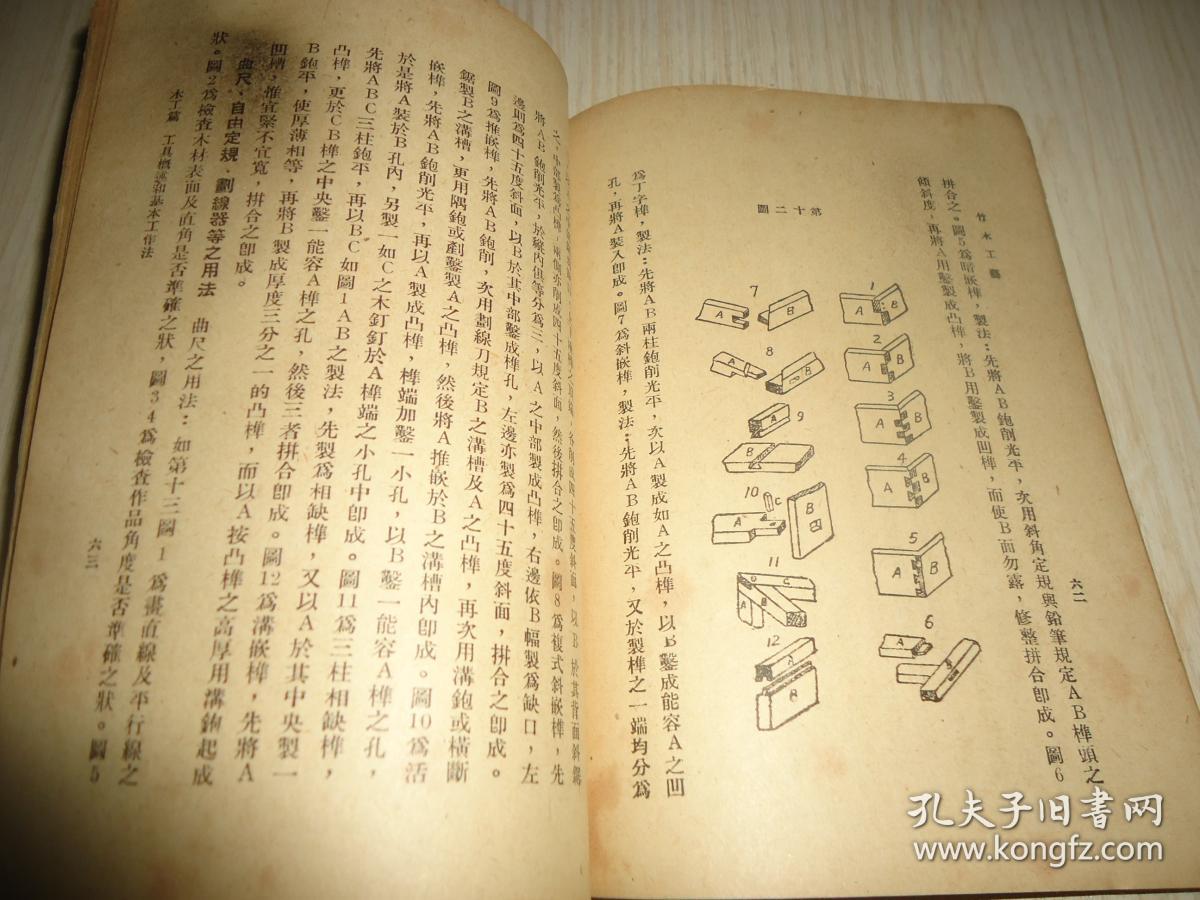 竹木工藝
六二
拼合之。圖5爲暗嵌榫，製法：先將AB鉋削光平，次用斜角定規與鉛筆規定AB榫頭之
傾斜度，再將A用鑿製成凸榫，將B用鑿製成凹榫，而使B面勿露，修整拼合卽成。圖6
1
A
B
2
A
B
3
A
4
A
B
5
A
B
6
A
7
A
B
8
9
A
B
10
A
B
C
11
A
B
C
12
A
B
第十二圖
爲丁字榫，製法：先將AB兩柱鉋削光平，次以A製成如A之凸榫，以B鑿成能容A之凹
孔，再將A裝入卽成。圖7爲斜嵌榫，製法：先將AB鉋削光平，又於製榫之一端均分爲
然後拼合之卽成。圖8爲複式斜嵌榫，先
將AB鉋削光平，於縱內俱等分爲三，以A之中部製成凸榫，右邊依B幅製爲缺口，左
邊則爲四十五度斜面，以B於其中部鑿成榫孔，左邊亦製爲四十五度斜面，拼合之卽成。
圖9爲推嵌榫，先將AB鉋削，次用劃線刀規定B之溝槽及A之凸榫，再次用溝鉋或橫斷
鋸製B之溝槽，更用隅鉋或剷鑿製A之凸榫，然後將A推嵌於B之溝槽內卽成。圖10爲活
嵌榫，先將AB鉋削光平，再以A製成凸榫，榫端加鑿一小孔，以B鑿一能容A榫之孔，
於是將A裝於B孔內，另製一如C之木釘釘於A榫端之小孔中卽成。圖11爲三柱相缺榫，
先將ABC三柱鉋平，再以BC如圖1AB之製法，先製爲相缺榫，又以A於其中央製一
凸榫，更於CB榫之中央鑿一能容A榫之孔，然後三者拼合卽成。圖12爲溝嵌榫，先將A
B鉋平，使厚薄相等，再將B製成厚度三分之一的凸榫，而以A按凸榫之高厚用溝鉋起成
凹槽，惟宜緊不宜寬，拼合之卽成。
曲尺、自由定規、劃線器等之用法　曲尺之用法：如第十三圖1爲畫直線及平行線之
狀。圖2爲檢查木材表面及直角是否準確之狀，圖34爲檢查作品角度是否準確之狀。圖5
木工篇　工具概述和基本工作法
六三
孔夫子旧书网
www.kongfz.com